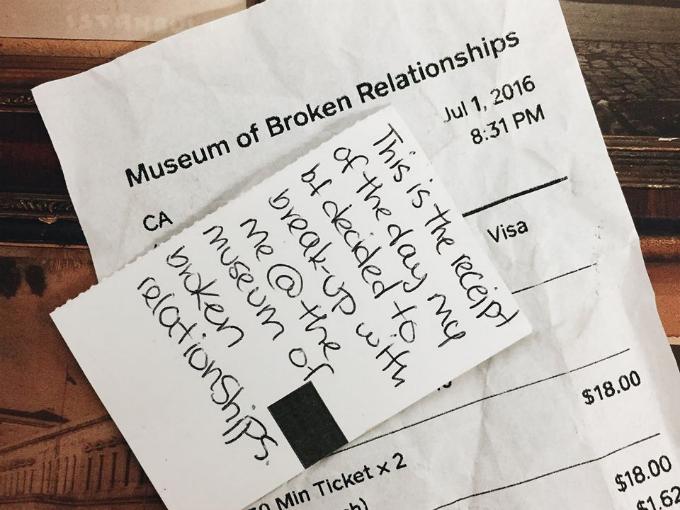 Museum of Broken Relationships
Jul 1, 2016
8:31 PM
CA
Visa
This is the receipt
of the day my
bf decided to
break-up with
me @ the
museum of
broken
relationships.
$18.00
Min Ticket x 2
$18.00
$1.62